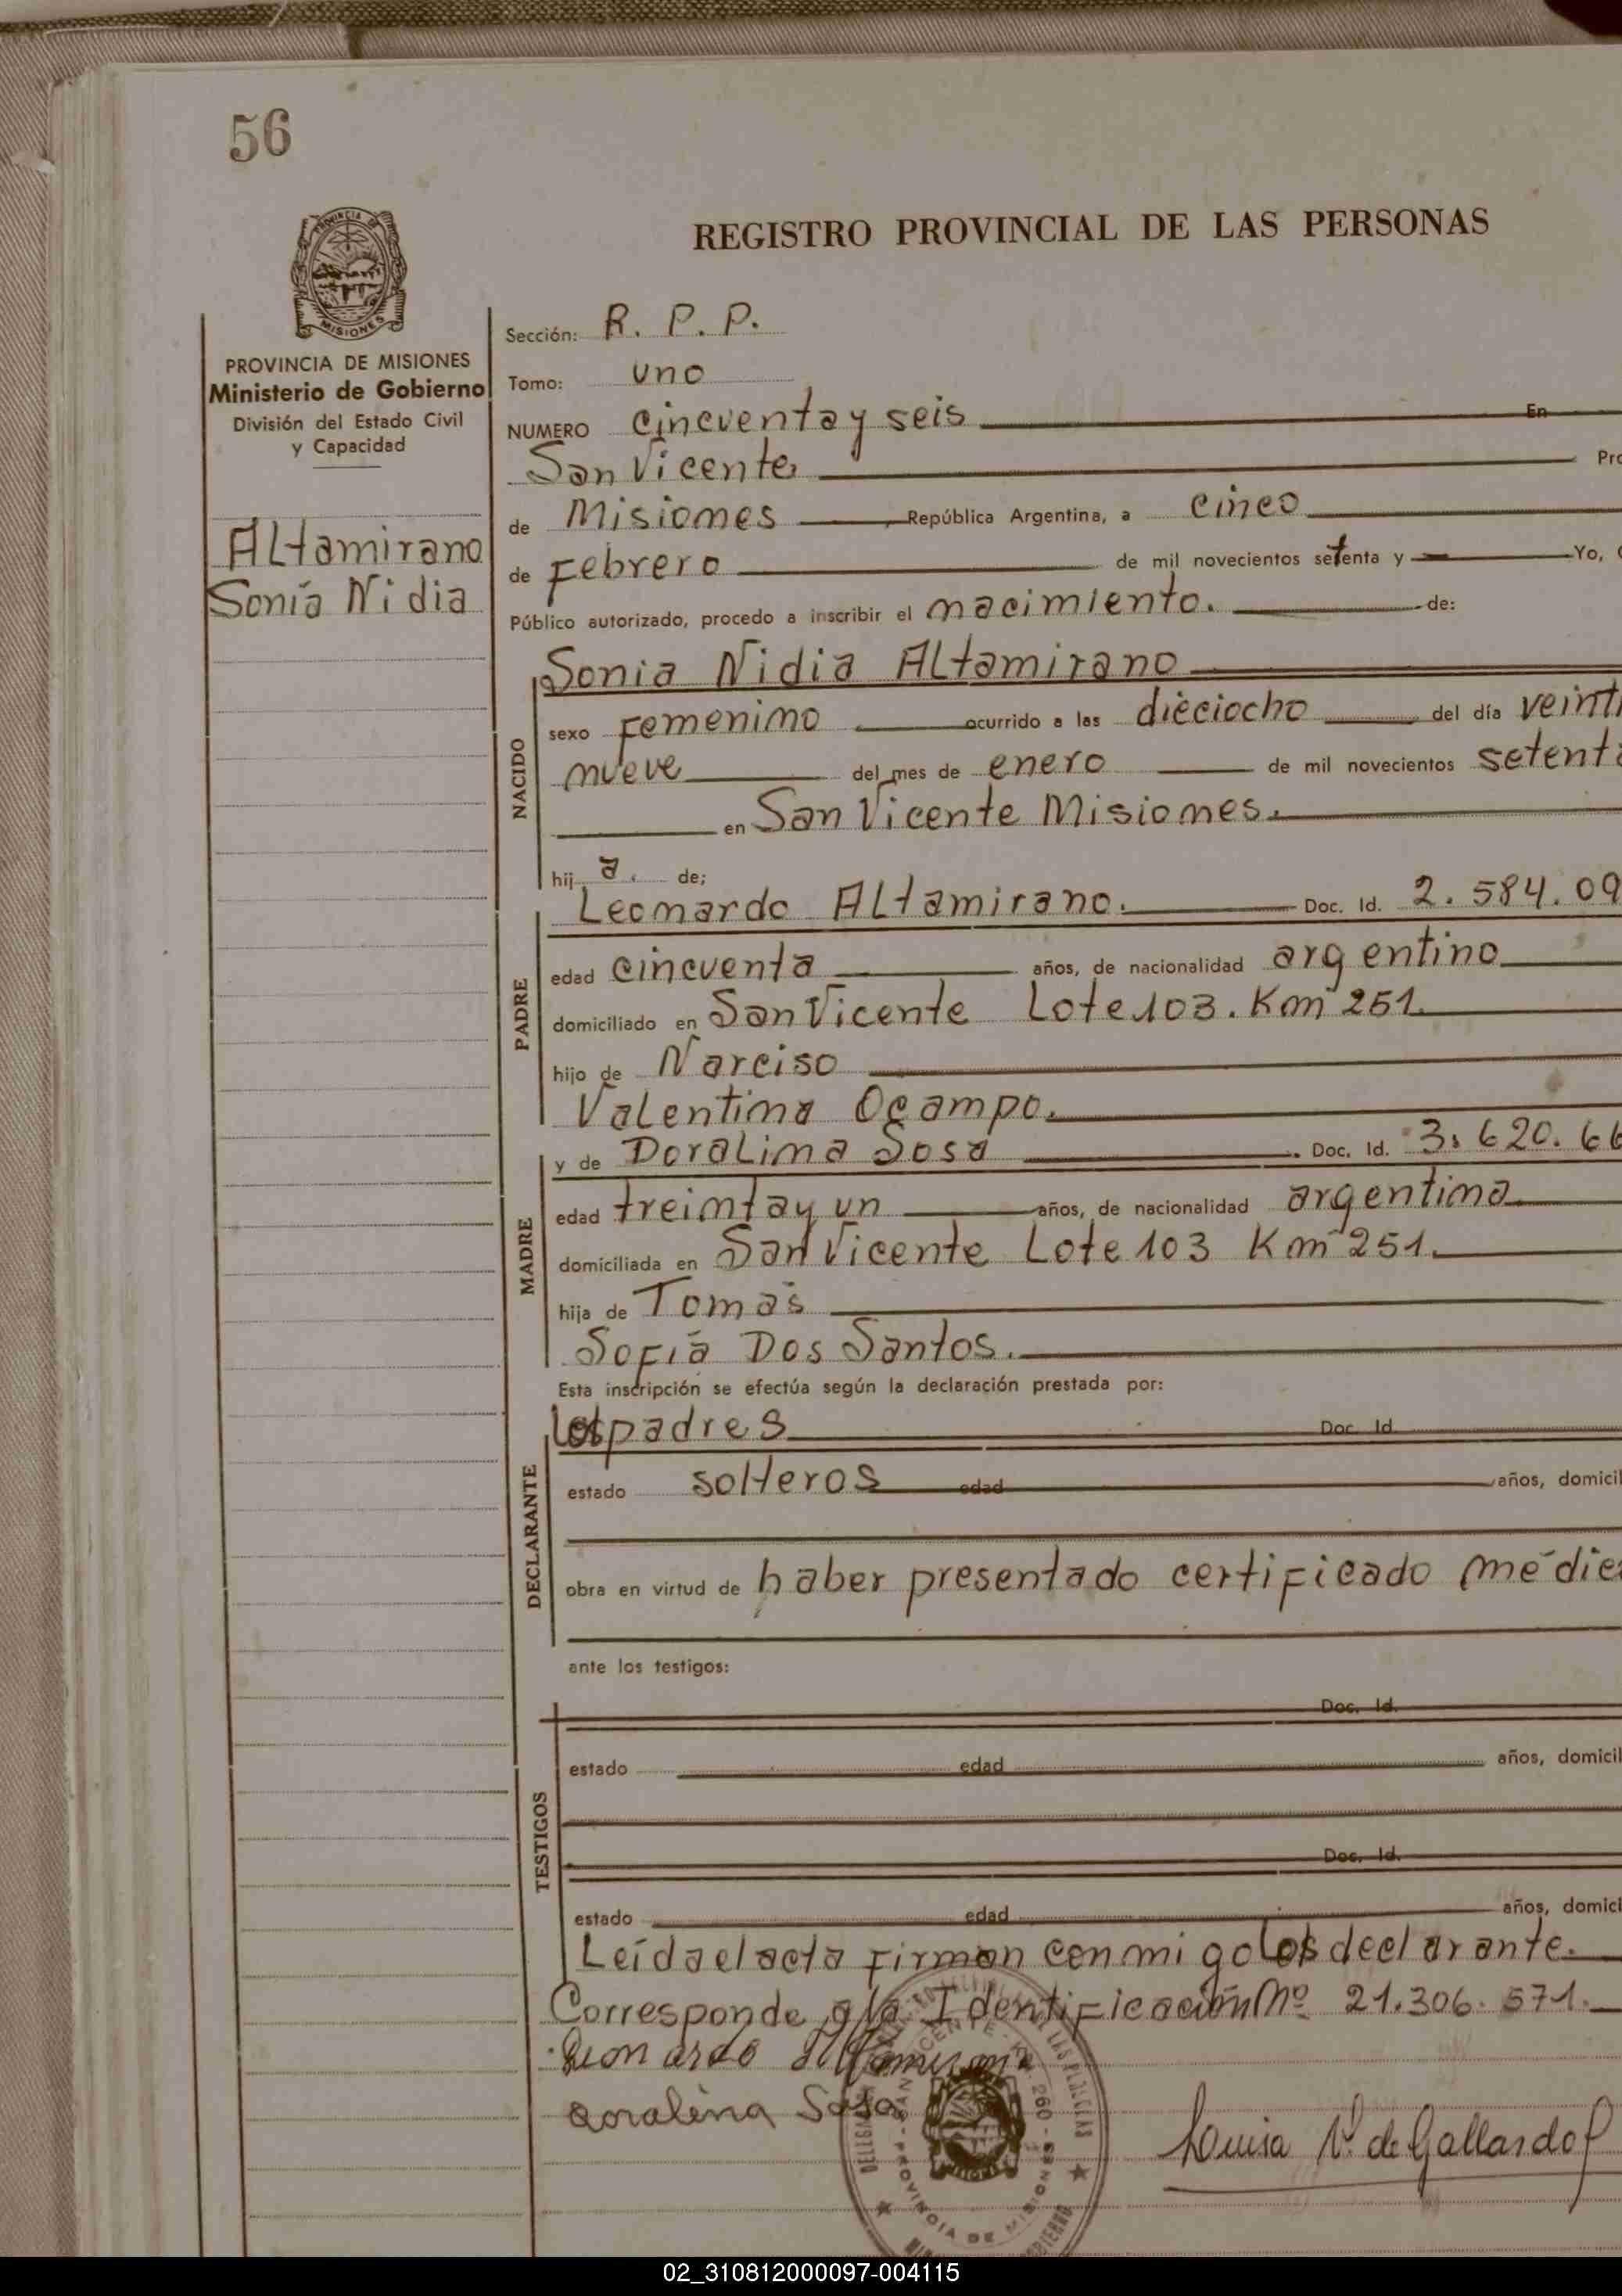 56
PROVINCIA DE MISIONES
PROVINCIA DE MISIONES
Ministerio de Gobierno
División del Estado Civil
y Capacidad
Altamirano
Sonia Nidia
REGISTRO PROVINCIAL DE LAS PERSONAS
Sección: R. P. P.
Tomo: uno
NUMERO cincuenta y seis En
San Vicente
de Misiones , República Argentina, a cinco
de Febrero de mil novecientos setenta y Yo,
Público autorizado, procedo a inscribir el nacimiento. de:
NACIDO
Sonia Nidia Altamirano
sexo Femenino ocurrido a las dieciocho del día veinti
nueve del mes de enero de mil novecientos setenta
en San Vicente Misiones.
hij a. de;
PADRE
Leonardo Altamirano. Doc. Id. 2.584.09
edad cincuenta años, de nacionalidad argentino
domiciliado en San Vicente Lote 103. Km 251.
hijo de Narciso
Valentina Ocampo.
MADRE
y de Doralina Sosa . Doc. Id. 3.620.66
edad treinta y un años, de nacionalidad argentina.
domiciliada en San Vicente Lote 103 Km 251.
hija de Tomás
Sofía Dos Santos.
Esta inscripción se efectúa según la declaración prestada por:
DECLARANTE
los padres Doc. Id.
estado solteros edad años, domicil
obra en virtud de haber presentado certificado médic
ante los testigos:
TESTIGOS
Doc. Id.
estado edad años, domicil
Doc. Id.
estado edad años, domici
Leída el acta firman conmigo los declarante.
Corresponde a la Identificación Nº 21.306.571.
Leonardo Altamirano
Doralina Sosa
Luisa V. de Gallardo
PROVINCIA DE MISIONES
02_310812000097-004115